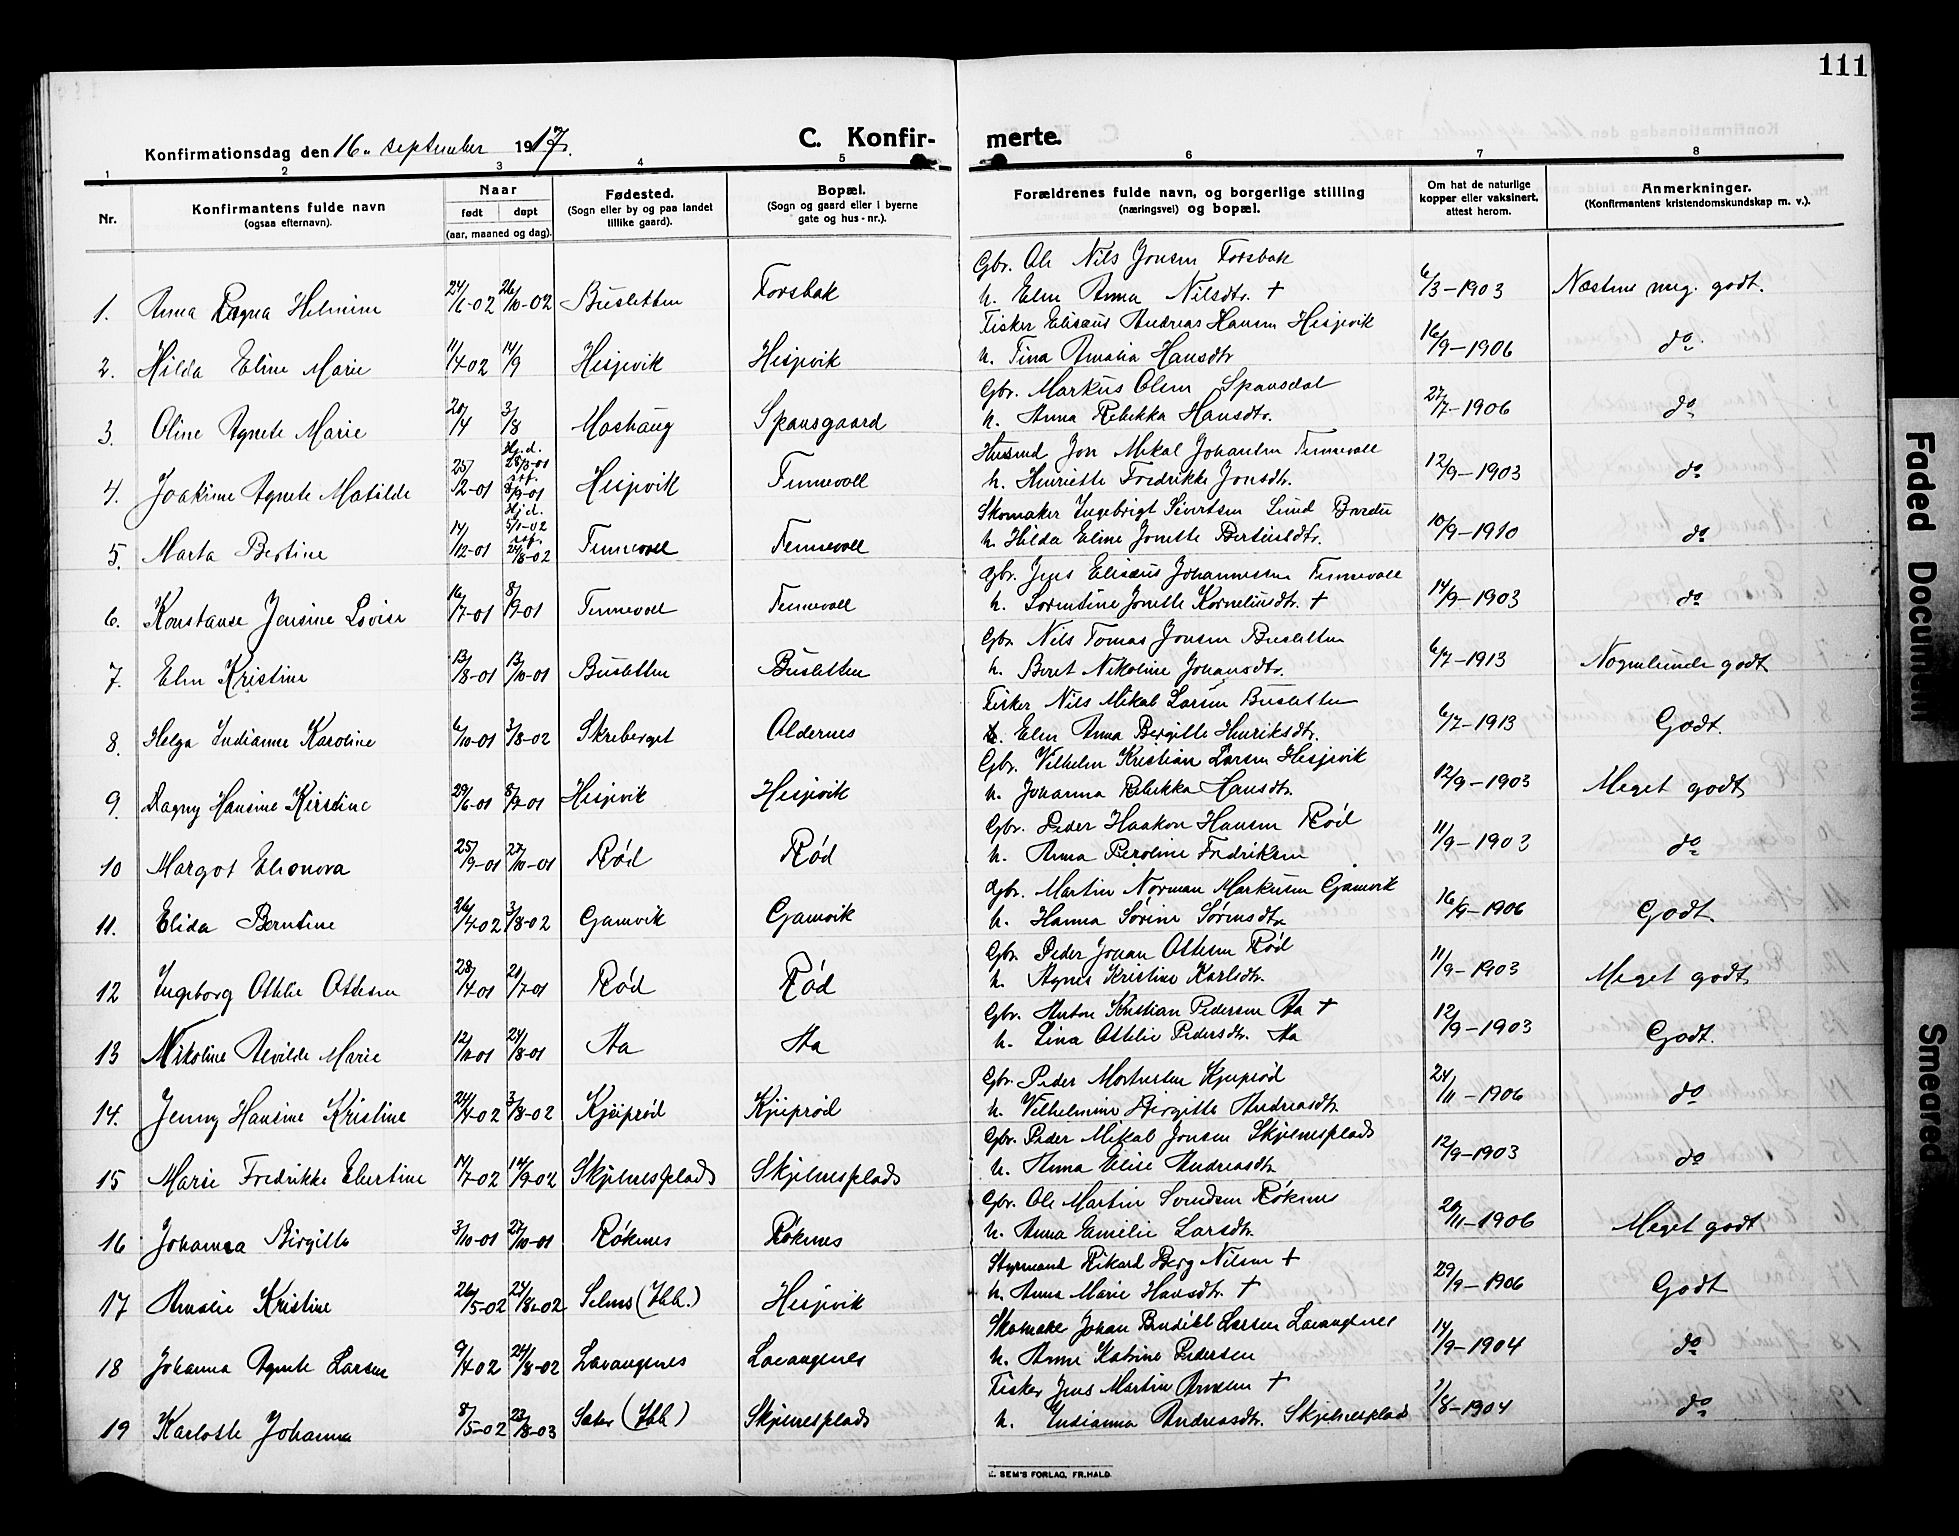 111
Konfirmationsdag den 16. september 1917.
C. Konfirmerte.
1 2 3 4 5 6 7 8
Nr.
Konfirmantens fulde navn
(ogsaa efternavn).
Naar
født døpt
(aar, maaned og dag).
Fødested.
(Sogn eller by og paa landet
tillike gaard).
Bopæl.
(Sogn og gaard eller i byerne
gate og hus-nr.).
Forældrenes fulde navn, og borgerlige stilling
(næringsvei) og bopæl.
Om hat de naturlige
kopper eller vaksinert,
attest herom.
Anmerkninger.
(Konfirmantens kristendomskundskap m. v.).
Gbr. Ole Nils Jonsen Forsbak
1. Anna Ragna Helmine 24/6-02 26/10-02 Busletten Forsbak h. Elen Anna Nilsdtr. + 6/3-1903 Næsten meg. godt.
Fisker Elisæus Andreas Hansen Hesjevik
2. Hilda Eline Marie 11/4-02 14/9 Hesjevik Hesjevik h. Tina Amalia Hansdtr 16/9-1906 do
Gbr. Markus Olsen Spansdal
3. Oline Agnete Marie 20/4 3/8 Moshaug Spansgaard h. Anna Rebekka Hansdtr. 27/7-1906 do
Husmd Jon Mikal Johansen Tennevoll
4. Joakime Agnete Matilde 25/2-01 Hj.d. 28/3-01 stf. 8/9-01 Hesjevik Tennevoll h. Henriette Fredrikke Jonsdtr. 12/9-1903 do
Skomaker Ingebrigt Sivertsen Lund
5. Marta Bertine 14/12-01 Hj.d. 5/1-02 stf. 24/8-02 Tennevoll Tennevoll h. Hilda Eline Jonette Bertinsdtr. 10/9-1910 do
Gbr. Jens Elisæus Johannessen Tennevoll
6. Konstanse Jensine Lovise 16/7-01 8/9-01 Tennevoll Tennevoll h. Sorentine Jonette Korneliusdtr. + 14/9-1903 do
Gbr. Nils Tomas Jonsen Busletten
7. Elen Kristine 13/8-01 13/10-01 Busletten Busletten h. Beret Nikoline Johansdtr. 6/7-1913 Nogenlunde godt
Fisker Nils Mikal Larsen Busletten
8. Helga Indianne Karoline 6/10-01 3/8-02 Skreberget Oldernes h. Elen Anna Bergitte Henriksdtr. 6/7-1913 Godt.
Gbr. Vilhelm Kristian Larsen Hesjevik
9. Ragny Hansine Kirstine 29/6-01 8/9-01 Hesjevik Hesjevik h. Johanna Rebekka Hansdtr. 12/9-1903 Meget godt
Gbr. Peder Haakon Hansen Rød
10 Margot Elionora 25/9-01 27/10-01 Rød Rød h. Anna Peroline Fredriksen 11/9-1903 do
Gbr. Martin Norman Markusen Gamvik
11. Elida Berntine 26/4-02 3/8-02 Gamvik Gamvik h. Hanna Sørine Sørensdtr 16/9-1906 Godt
Gbr. Peder Johan Ottesen Rød
12 Ingeborg Ottelie Ottesen 28/4-01 21/7-01 Rød Rød h. Agnes Kristine Karlsdtr. 11/9-1903 Meget godt
Gbr. Anton Kristian Pedersen Aa +
13 Nikoline Alvilde Marie 24/8-01 Aa Aa h. Lina Ottelie Pedersdtr. Aa 12/9-1903 Godt.
Gbr. Peder Mortensen Kjeiprød
14. Jenny Hansine Kristine 24/4-02 3/8-02 Kjeiprød Kjeiprød h. Vilhelmine Birgitte Andreasdtr. 24/11-1906 do
Gbr. Peder Mikal Jonsen Skjelnesplads
15 Marie Fredrikke Ebertine 17/7-02 14/9-02 Skjelnesplads Skjelnesplads h. Anna Elise Andreasdtr 12/9-1903 do
Gbr. Ole Martin Svendsen Røknes
16 Johanna Birgitte 3/10-01 27/10-01 Røknes Røknes h. Anna Emilie Larsdtr. 20/11-1906 Meget godt
Styrmand Rikard Berg Nilsen +
17 Amalie Kristine 26/5-02 24/8-02 Selnes (Ibb.) Hesjevik h. Anna Marie Hansdtr. + 29/9-1906 Godt
Skomaker Johan Bendikt Larsen Lavangnes
18 Johanna Agnete Larsen 9/4-02 24/8-02 Lavangnes Lavangnes h. Anne Katrine Pedersen 14/9-1904 do
Fisker Jens Martin Arnesen +
19 Karlotte Johanna 8/5-02 23/8-03 Sæter (Ibb.) Skjelnesplads h. Indianna Andreasdtr. Skjelnesplads 1/8-1904 do
E. SEM'S FORLAG, FR.HALD.
Faded Document
Smeared